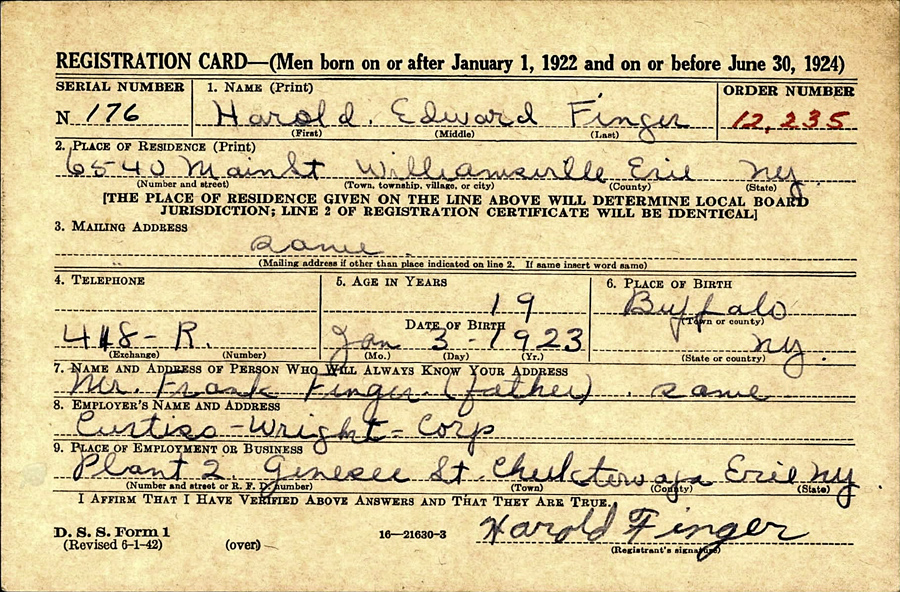 REGISTRATION CARD—(Men born on or after January 1, 1922 and on or before June 30, 1924)
SERIAL NUMBER 1. NAME (Print) ORDER NUMBER
N 176 Harold. Edward Finger 12,235
(First) (Middle) (Last)
2. PLACE OF RESIDENCE (Print)
6540 Main St Williamsville Erie Ny.
(Number and street) (Town, township, village, or city) (County) (State)
[THE PLACE OF RESIDENCE GIVEN ON THE LINE ABOVE WILL DETERMINE LOCAL BOARD
JURISDICTION; LINE 2 OF REGISTRATION CERTIFICATE WILL BE IDENTICAL]
3. MAILING ADDRESS
same
(Mailing address if other than place indicated on line 2. If same insert word same)
4. TELEPHONE 5. AGE IN YEARS 6. PLACE OF BIRTH
19 Buffalo
DATE OF BIRTH (Town or county)
418-R. Jan 3-1923 Ny.
(Exchange) (Number) (Mo.) (Day) (Yr.) (State or country)
7. NAME AND ADDRESS OF PERSON WHO WILL ALWAYS KNOW YOUR ADDRESS
Mr. Frank Finger. (father). same
8. EMPLOYER'S NAME AND ADDRESS
Curtiss-Wright-Corp
9. PLACE OF EMPLOYMENT OR BUSINESS
Plant 2. Genesee St. Cheektowaga Erie Ny.
(Number and street or R. F. D. number) (Town) (County) (State)
I AFFIRM THAT I HAVE VERIFIED ABOVE ANSWERS AND THAT THEY ARE TRUE.
D. S. S. Form 1 16—21630-3 Harold Finger
(Revised 6-1-42) (over) (Registrant's signature)